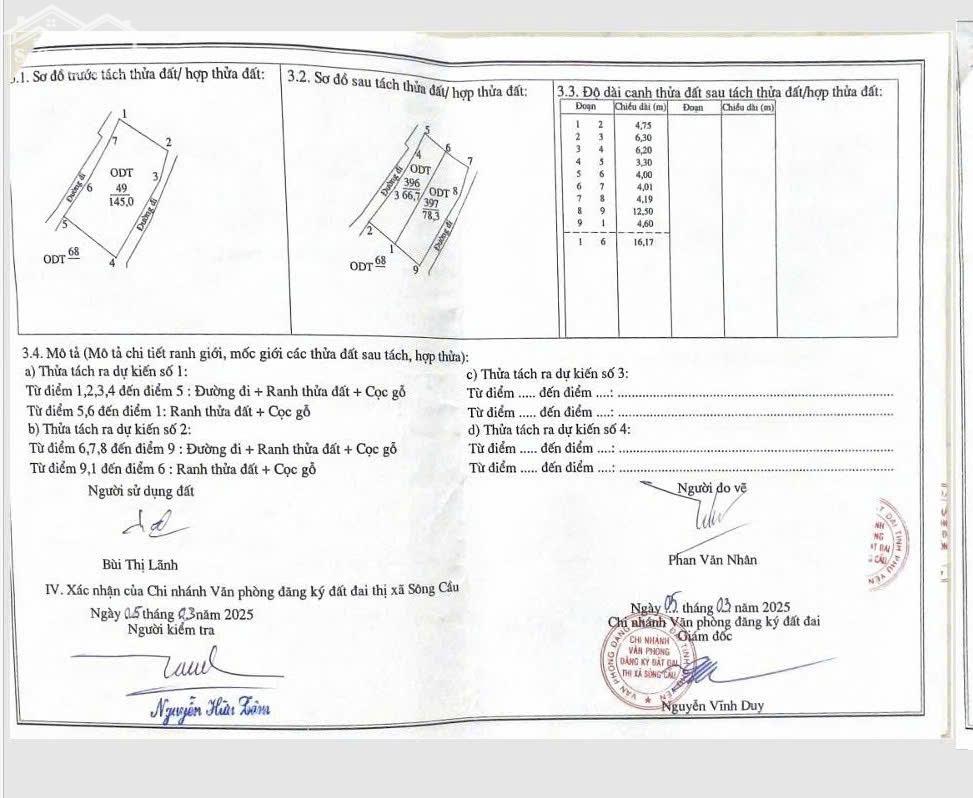 3.1. Sơ đồ trước tách thửa đất/ hợp thửa đất:
1
2
7
ODT
3
49
145,0
6
Đường đi
Đường đi
5
4
ODT 68
3.2. Sơ đồ sau tách thửa đất/ hợp thửa đất:
5
6
4
7
ODT
396
66,7
3
ODT 8
397
78,3
Đường đi
Đường đi
2
1
9
ODT 68
3.3. Độ dài cạnh thửa đất sau tách thửa đất/hợp thửa đất:
Đoạn Chiều dài (m) Đoạn Chiều dài (m)
1 2 4,75
2 3 6,30
3 4 6,20
4 5 3,30
5 6 4,00
6 7 4,01
7 8 4,19
8 9 12,50
9 1 4,60
1 6 16,17
3.4. Mô tả (Mô tả chi tiết ranh giới, mốc giới các thửa đất sau tách, hợp thửa):
a) Thửa tách ra dự kiến số 1:
Từ điểm 1,2,3,4 đến điểm 5 : Đường đi + Ranh thửa đất + Cọc gỗ
Từ điểm 5,6 đến điểm 1: Ranh thửa đất + Cọc gỗ
b) Thửa tách ra dự kiến số 2:
Từ điểm 6,7,8 đến điểm 9 : Đường đi + Ranh thửa đất + Cọc gỗ
Từ điểm 9,1 đến điểm 6 : Ranh thửa đất + Cọc gỗ
c) Thửa tách ra dự kiến số 3:
Từ điểm ..... đến điểm ....: ....................
Từ điểm ..... đến điểm ....: ....................
d) Thửa tách ra dự kiến số 4:
Từ điểm ..... đến điểm ....: ....................
Từ điểm ..... đến điểm ....: ....................
Người sử dụng đất
Bùi Thị Lãnh
Người đo vẽ
Phan Văn Nhân
IV. Xác nhận của Chi nhánh Văn phòng đăng ký đất đai thị xã Sông Cầu
Ngày 05 tháng 03 năm 2025
Người kiểm tra
Nguyễn Hữu
Ngày 05 tháng 03 năm 2025
Chi nhánh Văn phòng đăng ký đất đai
Giám đốc
CHI NHÁNH
VĂN PHÒNG
ĐĂNG KÝ ĐẤT ĐAI
THỊ XÃ SÔNG CẦU
Nguyễn Vĩnh Duy